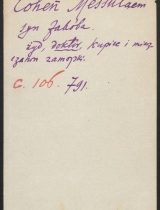 Coheń Messulaem
syn Jakóba.
żyd, doktór, kupiec i miesz
czanin zamojski.
C. 106. 791.